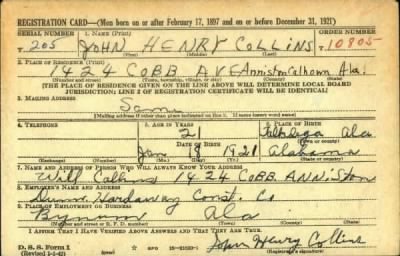 REGISTRATION CARD—(Men born on or after February 17, 1897 and on or before December 31, 1921)
SERIAL NUMBER 1. NAME (Print) ORDER NUMBER
T 205 JOHN HENRY COLLINS T 10805
(First) (Middle) (Last)
2. PLACE OF RESIDENCE (Print)
1424 COBB AVE Anniston Calhoun Ala.
(Number and street) (Town, township, village, or city) (County) (State)
[THE PLACE OF RESIDENCE GIVEN ON THE LINE ABOVE WILL DETERMINE LOCAL BOARD
JURISDICTION; LINE 2 OF REGISTRATION CERTIFICATE WILL BE IDENTICAL]
3. MAILING ADDRESS
Same
[Mailing address if other than place indicated on line 2. If same insert word same]
4. TELEPHONE 5. AGE IN YEARS 6. PLACE OF BIRTH
21 Ala
DATE OF BIRTH (Town or county)
Jan 9 1921 Alabama
(Exchange) (Number) (Mo.) (Day) (Yr.) (State or country)
7. NAME AND ADDRESS OF PERSON WHO WILL ALWAYS KNOW YOUR ADDRESS
Will Collins 1424 COBB. ANNISton
8. EMPLOYER'S NAME AND ADDRESS
Dunn. Hardaway Const. Co
9. PLACE OF EMPLOYMENT OR BUSINESS
Bynum Ala
(Number and street or R. F. D. number) (Town) (County) (State)
I AFFIRM THAT I HAVE VERIFIED ABOVE ANSWERS AND THAT THEY ARE TRUE.
D. S. S. Form 1
(Revised 1-1-42) (over) GPO John Henry Collins
(Registrant's signature)